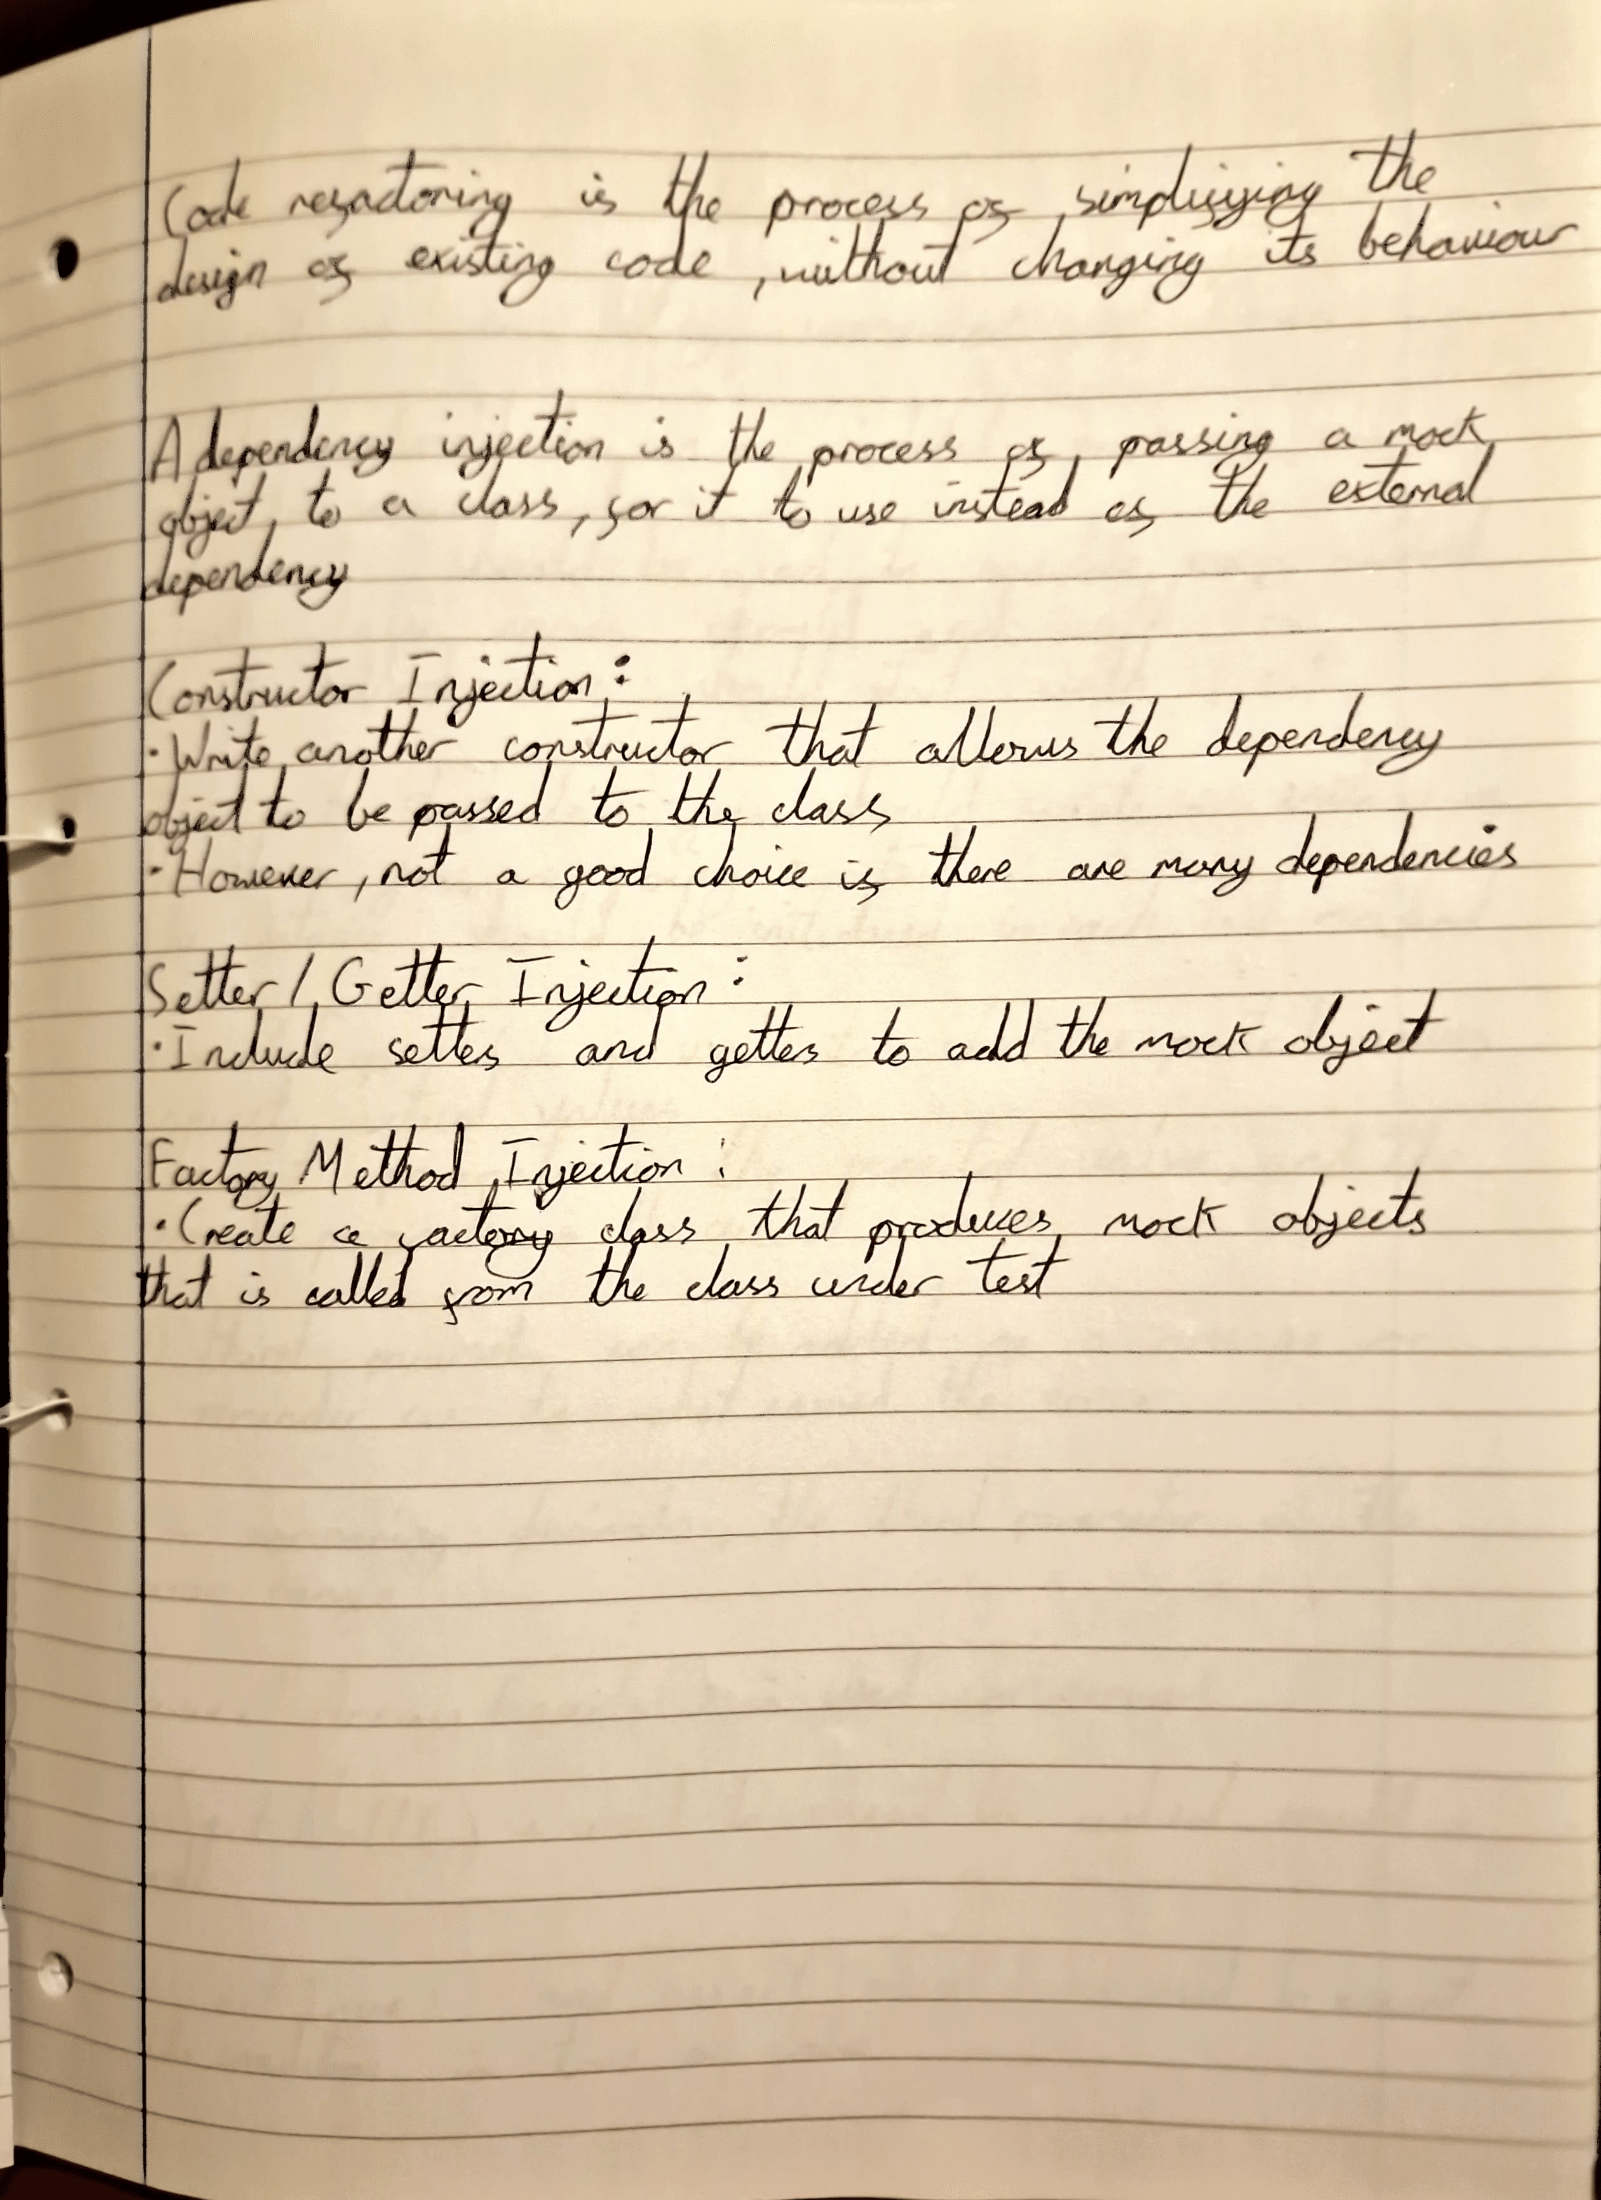 Code refactoring is the process of simplifying the
design of existing code, without changing its behaviour
A dependency injection is the process of passing a mock
object, to a class, for it to use instead of the external
dependency
Constructor Injection:
· Write another constructor that allows the dependency
object to be passed to the class
· However, not a good choice if there are many dependencies
Setter / Getter Injection:
· Include settes and gettes to add the mock object
Factory Method Injection:
· Create a factory class that produces mock objects
that is called from the class under test